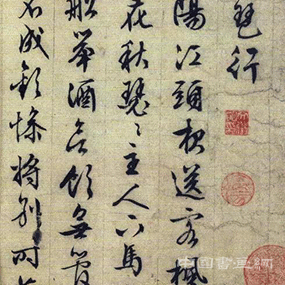 琶行
陽江頭夜送客楓
花秋瑟々主人下馬
船舉酒欲飲無管
成歡慘將別時
中國書畫網